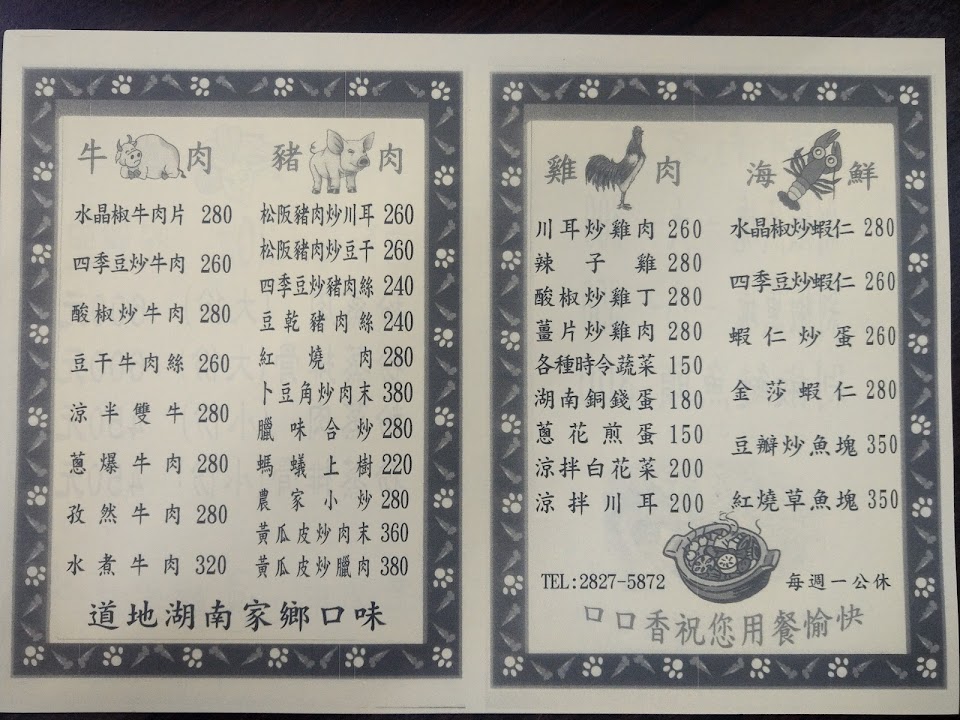 牛肉
水晶椒牛肉片 280
四季豆炒牛肉 260
酸椒炒牛肉 280
豆干牛肉絲 260
涼半雙牛 280
蔥爆牛肉 280
孜然牛肉 280
水煮牛肉 320
豬肉
松阪豬肉炒川耳 260
松阪豬肉炒豆干 260
四季豆炒豬肉絲 240
豆乾豬肉絲 240
紅燒肉 280
卜豆角炒肉末 380
臘味合炒 280
螞蟻上樹 220
農家小炒 280
黃瓜皮炒肉末 360
黃瓜皮炒臘肉 380
道地湖南家鄉口味
雞肉
川耳炒雞肉 260
辣子雞 280
酸椒炒雞丁 280
薑片炒雞肉 280
各種時令蔬菜 150
湖南銅錢蛋 180
蔥花煎蛋 150
涼拌白花菜 200
涼拌川耳 200
海鮮
水晶椒炒蝦仁 280
四季豆炒蝦仁 260
蝦仁炒蛋 260
金莎蝦仁 280
豆瓣炒魚塊 350
紅燒草魚塊 350
TEL:2827-5872
每週一公休
口口香祝您用餐愉快